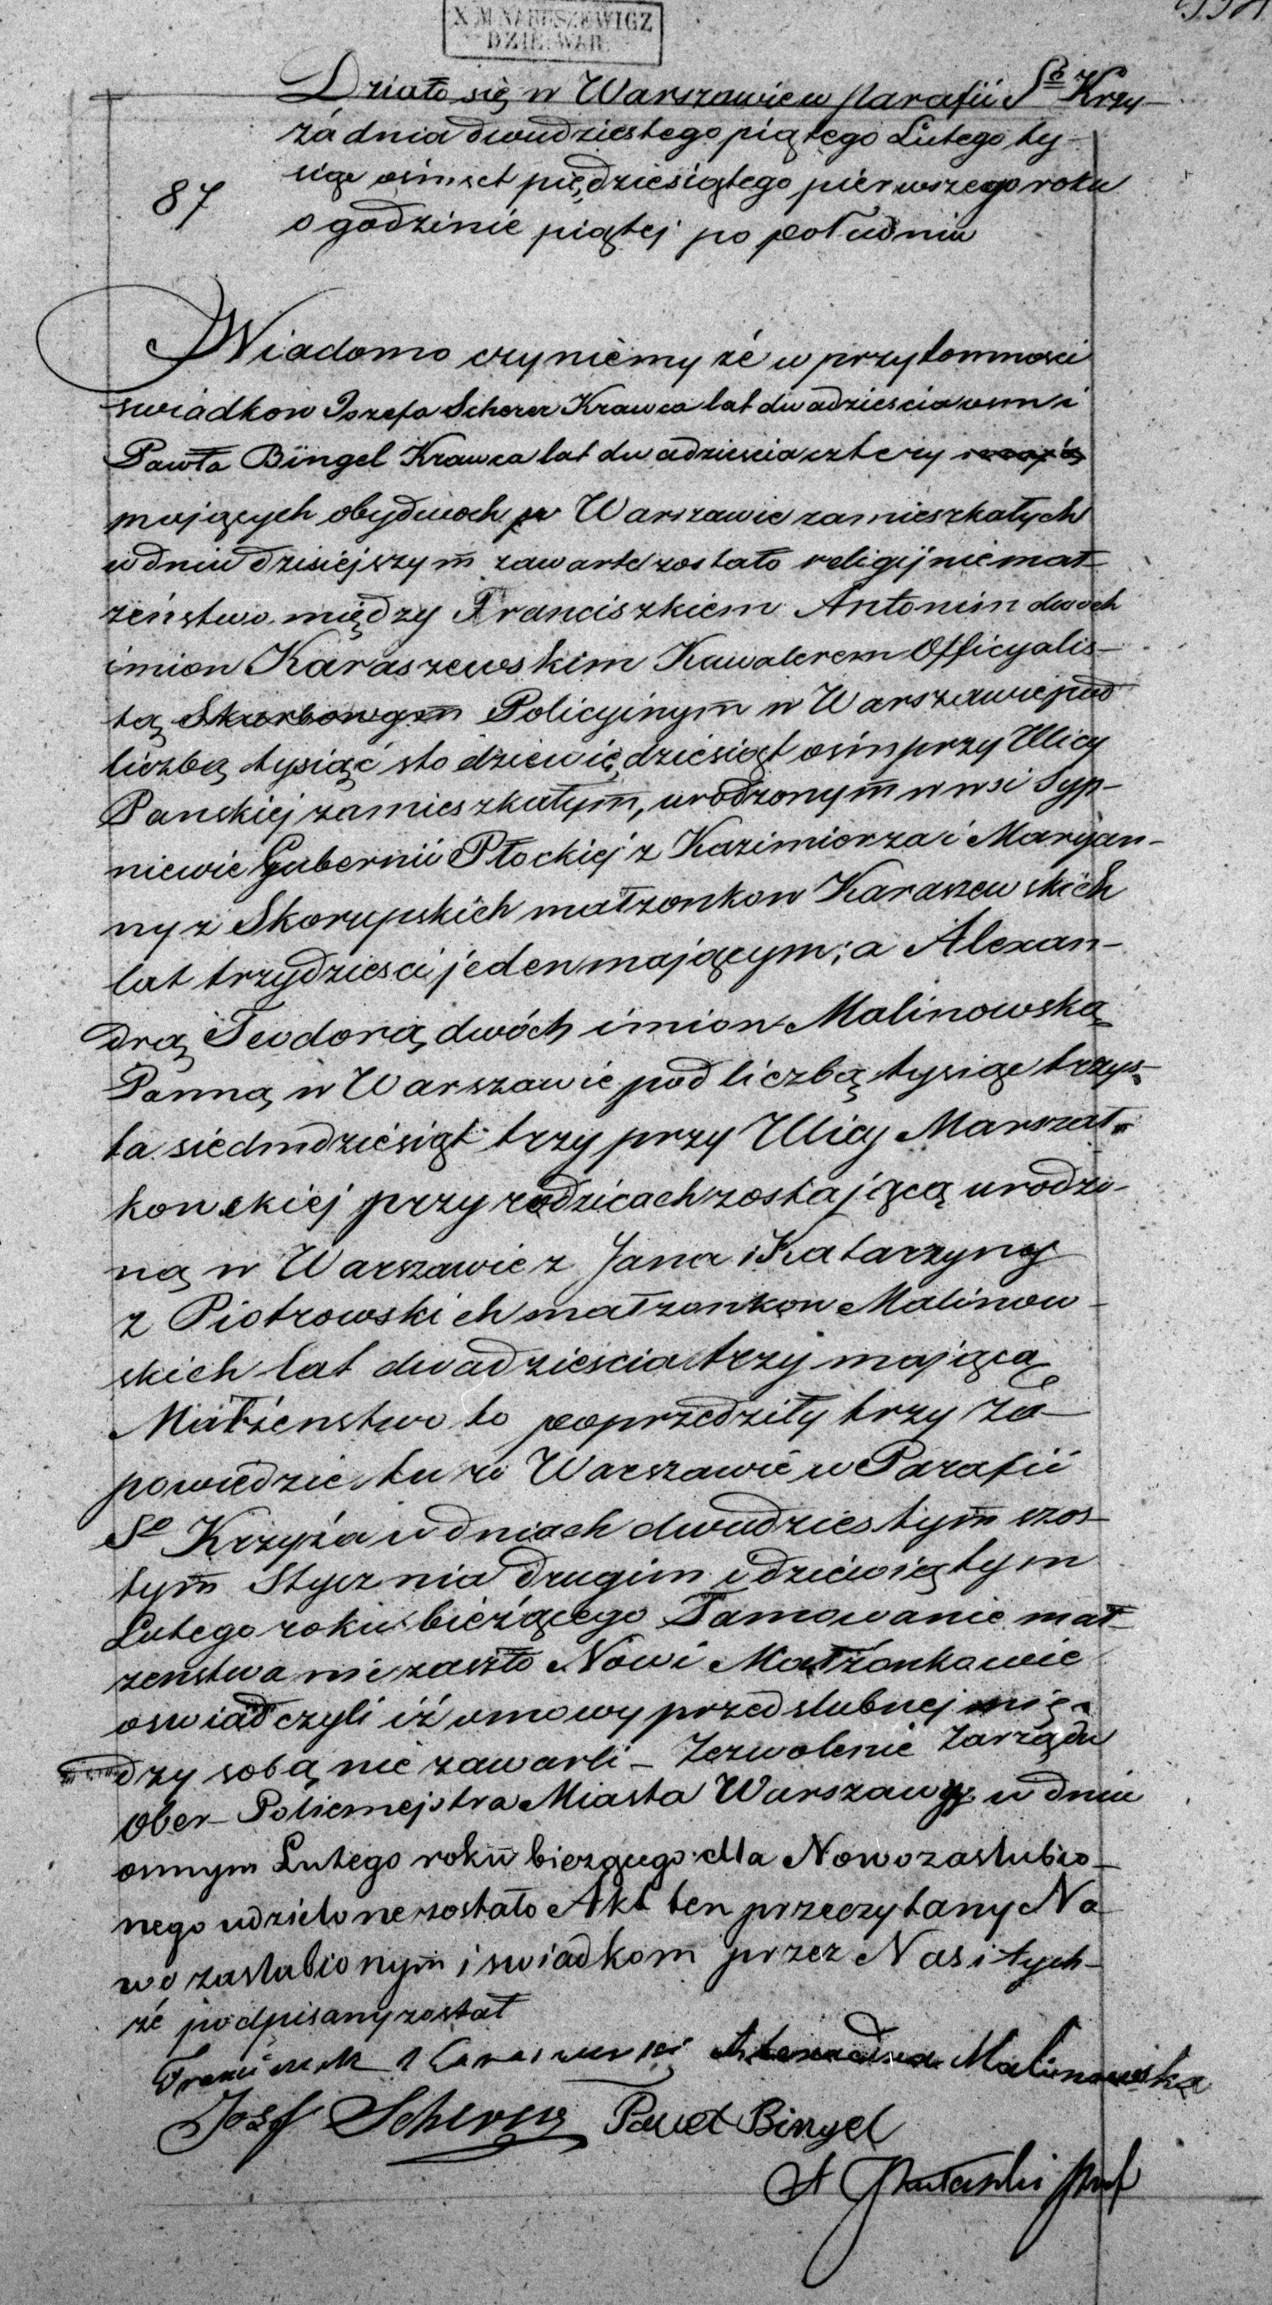 X. M. NARUSZEWICZ
DZIE. WAR.
87
Działo się w Warszawie w parafii Sgo Krzy-
ża dnia dwudziestego piątego Lutego ty-
siąc ośmset piędziesiątego pierwszego roku
o godzinie piątej po południu
Wiadomo czyniemy że w przytomnosci
swiadkow Jozefa Scherer Krawca lat dwadziescia osm i
Pawła Bingel Krawca lat dwadziescia cztery
mających obydwoch w Warszawie zamieszkałych
w dniu dzisiejszym zawarte zostało religijnie mał-
żeństwo między Franciszkiem Antonim dwoch
imion Karaszewskim Kawalerem Officyalis-
tą Skarbowym Policyinym w Warszawie pod
liczbą tysiąc sto dziewiędziesiąt ośm przy Ulicy
Panskiej zamieszkałym, urodzonym w wsi Syp-
niewie Gubernii Płockiej z Kazimierza i Maryan-
ny z Skorupskich małzonkow Karaszewskich
lat trzydziesci jeden mającym; a Alexan-
drą Teodorą dwóch imion Malinowską
Panną w Warszawie pod liczbą tysiąc trzys-
ta siedmdziesiąt trzy przy Ulicy Marszał-
kowskiej przy rodzicach zostającą urodzo-
ną w Warszawie z Jana i Katarzyny
z Piotrowskich małzonkow Malinow-
skich lat dwadziescia trzy mającą
Małżenstwo to poprzedziły trzy Za-
powiedzie tu w Warszawie w Parafii
Sgo Krzyża w dniach dwudziestym szos-
tym Stycznia drugim i dziewiątym
Lutego roku bieżącego Tamowanie mał-
zenstwa nie zaszło Nowi Małżonkowie
oswiadczyli iż umowy przedslubnej mię-
dzy sobą nie zawarli – Zezwolenie Zarządu
Ober-Policmejstra Miasta Warszawy w dniu
osmym Lutego roku bieżącego dla Nowozaslubio-
nego udzielone zostało Akt ten przeczytany No-
wo zaslubionym i swiadkom przez Nas i tych-
że podpisany został
Franciszek Karaszewski Alexandra Malinowska
Josef Scherer Paweł Bingel